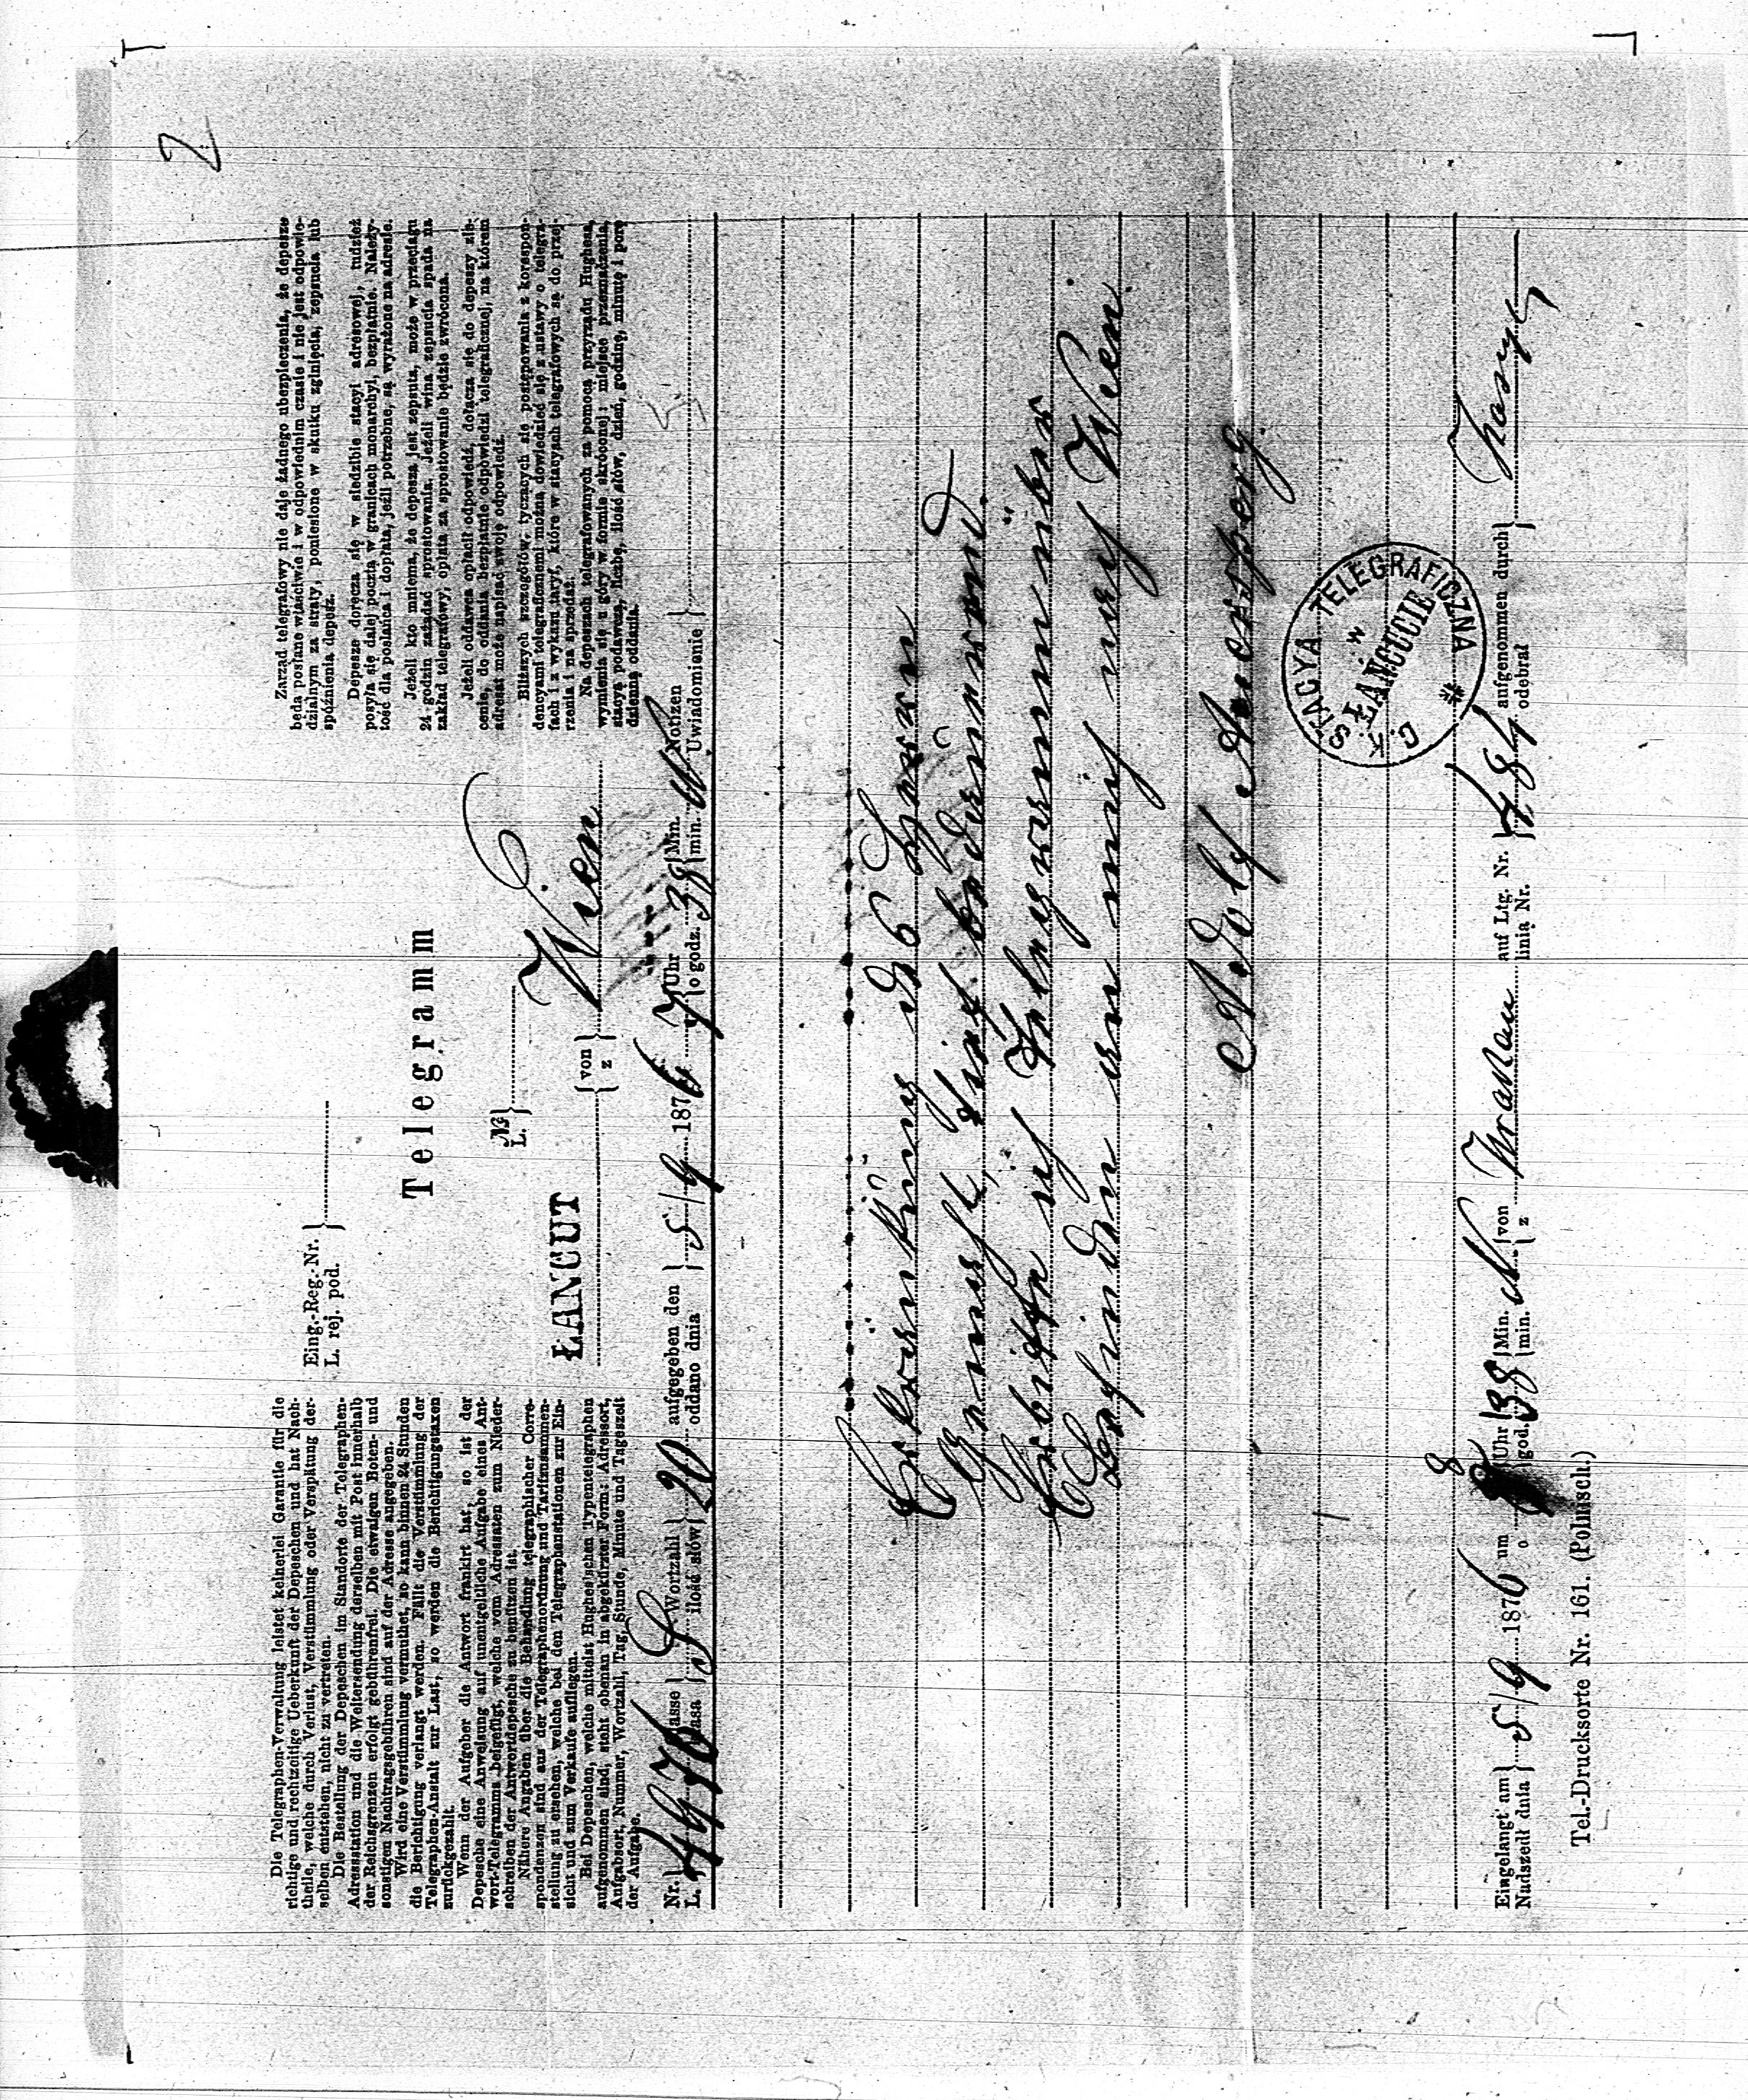 2
Die Telegraphen-Verwaltung leistet keinerlei Garantie für die
richtige und rechtzeitige Ueberkunft der Depeschen und hat Nach-
theile, welche durch Verlust, Verstümmlung oder Verspätung der-
selben entstehen, nicht zu vertreten.
Die Bestellung der Depeschen im Standorte der Telegraphen-
Adressstation und die Weitersendung derselben mit Post innerhalb
der Reichsgrenzen erfolgt gebührenfrei. Die etwaigen Boten- und
sonstigen Nachtragsgebühren sind auf der Adresse angegeben.
Wird eine Verstümmlung vermuthet, so kann binnen 24 Stunden
die Berichtigung verlangt werden. Fällt die Verstümmlung der
Telegraphen-Anstalt zur Last, so werden die Berichtigungstaxen
zurückgezahlt.
Wenn der Aufgeber die Antwort frankirt hat, so ist der
Depesche eine Anweisung auf unentgeltliche Aufgabe eines Ant-
wort-Telegramms beigefügt, welche vom Adressaten zum Nieder-
schreiben der Antwortdepesche zu benützen ist.
Nähere Angaben über die Behandlung telegraphischer Corre-
spondenzen sind aus der Telegraphenordnung und Tarifzusammen-
stellung zu ersehen, welche bei den Telegraphenstationen zur Ein-
sicht und zum Verkaufe aufliegen.
Bei Depeschen, welche mittelst Hughes'schen Typentelegraphen
aufgenommen sind, steht obenan in abgekürzter Form: Adressort,
Aufgabsort, Nummer, Wortzahl, Tag, Stunde, Minute und Tageszeit
der Aufgabe.
Eing.-Reg.-Nr.
L. rej. pod.
Telegramm
№
L.
ŁANCUT
von
z
Wien
Zarząd telegrafowy nie daje żadnego ubezpieczenia, że depesze
będą posłane właściwie i w odpowiednim czasie i nie jest odpowie-
dzialnym za straty, poniesione w skutku zginięcia, zepsucia lub
spóźnienia depesz.
Depesze doręcza się w siedzibie stacyi adresowej, tudzież
posyła się dalej pocztą w granicach monarchyi, bezpłatnie. Należy-
tość dla posłańca i dopłata, jeźli potrzebne, są wyrażone na adresie.
Jeżeli kto mniema, że depesza jest zepsuta, może w przeciągu
24 godzin zażądać sprostowania. Jeżeli wina zepsucia spada na
zakład telegrafowy, opłata za sprostowanie będzie zwrócona.
Jeżeli oddawca opłacił odpowiedź, dołącza się do depeszy zle-
cenie, do oddania bezpłatnie odpowiedzi telegraficznej, na którem
adresat może napisać swoję odpowiedź.
Bliższych szczegółów, tyczących się postępowania z korespon-
dencyami telegraficznemi można dowiedzieć się z ustawy o telegra-
fach i z wykazu taryf, które w stacyach telegrafowych są do przej-
rzenia i na sprzedaż.
Na depeszach telegrafowanych za pomocą przyrządu Hughesa,
wymienia się u góry w formie skróconej: miejsce przeznaczenia,
stacyą podawczą, liczbę, ilość słów, dzień, godzinę, minutę i porę
dzienną oddania.
Nr.
L. 4976
Klasse
klasa
Wortzahl
ilość słów 20
aufgegeben den
oddano dnia 5/9 1876
7 Uhr
o godz. 38 Min.
min. N.
Notizen
Uwiadomienie
Erkrankung ds G Herrn
Gemahl, tief bedauernd.
Erbitte ich Telegramm über
Befinden an mich nach Wien
Adolf Auersperg.
C. K. STACYA TELEGRAFICZNA
w
ŁAŃCUCIE
Eingelangt am
Nadszedł dnia 5/9 1876 um
o 8 Uhr
god. 38 Min.
min. N. von
z Krakau auf Ltg. Nr.
linią Nr. 484 aufgenommen durch
odebrał
Tel.-Drucksorte Nr. 161. (Polnisch.)